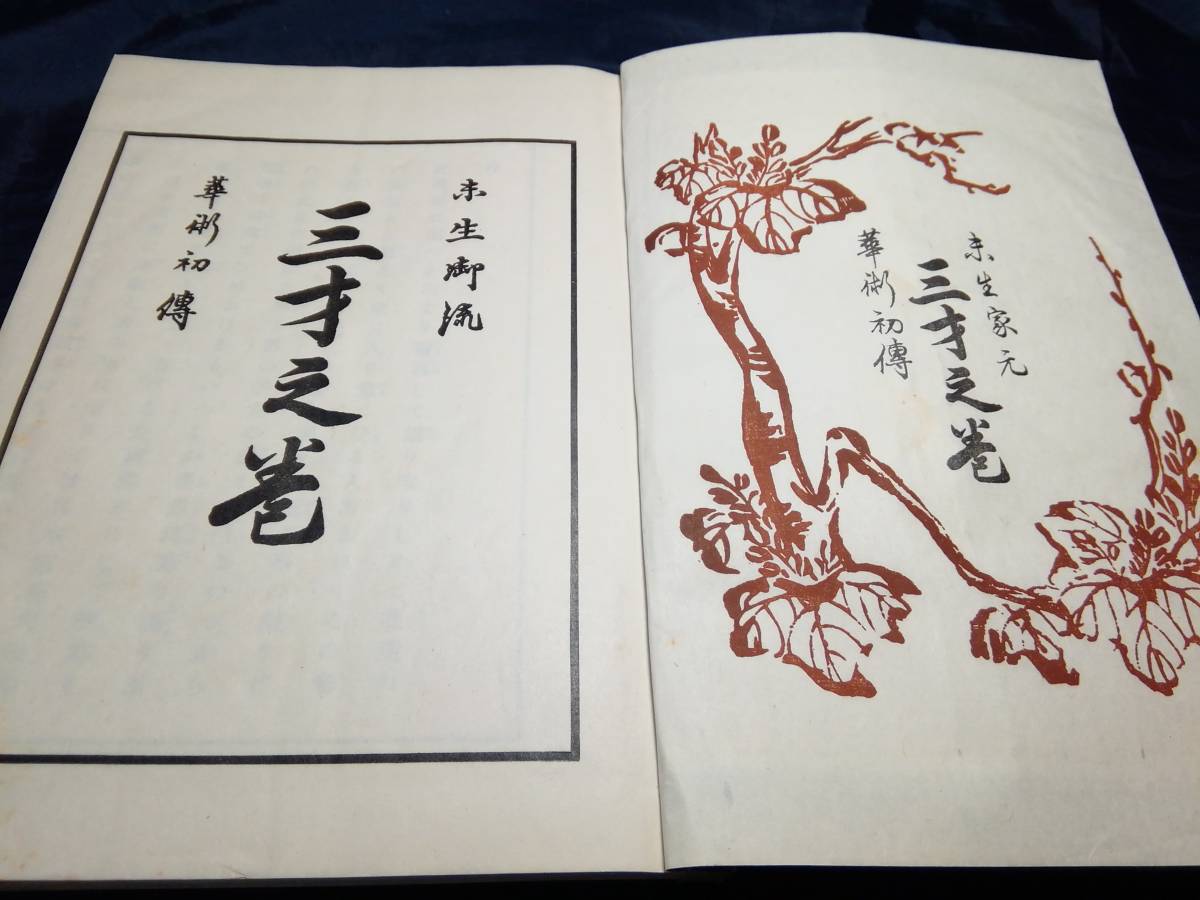 未生家元
三才之巻
華術初傳
未生御流
三才之巻
華術初傳